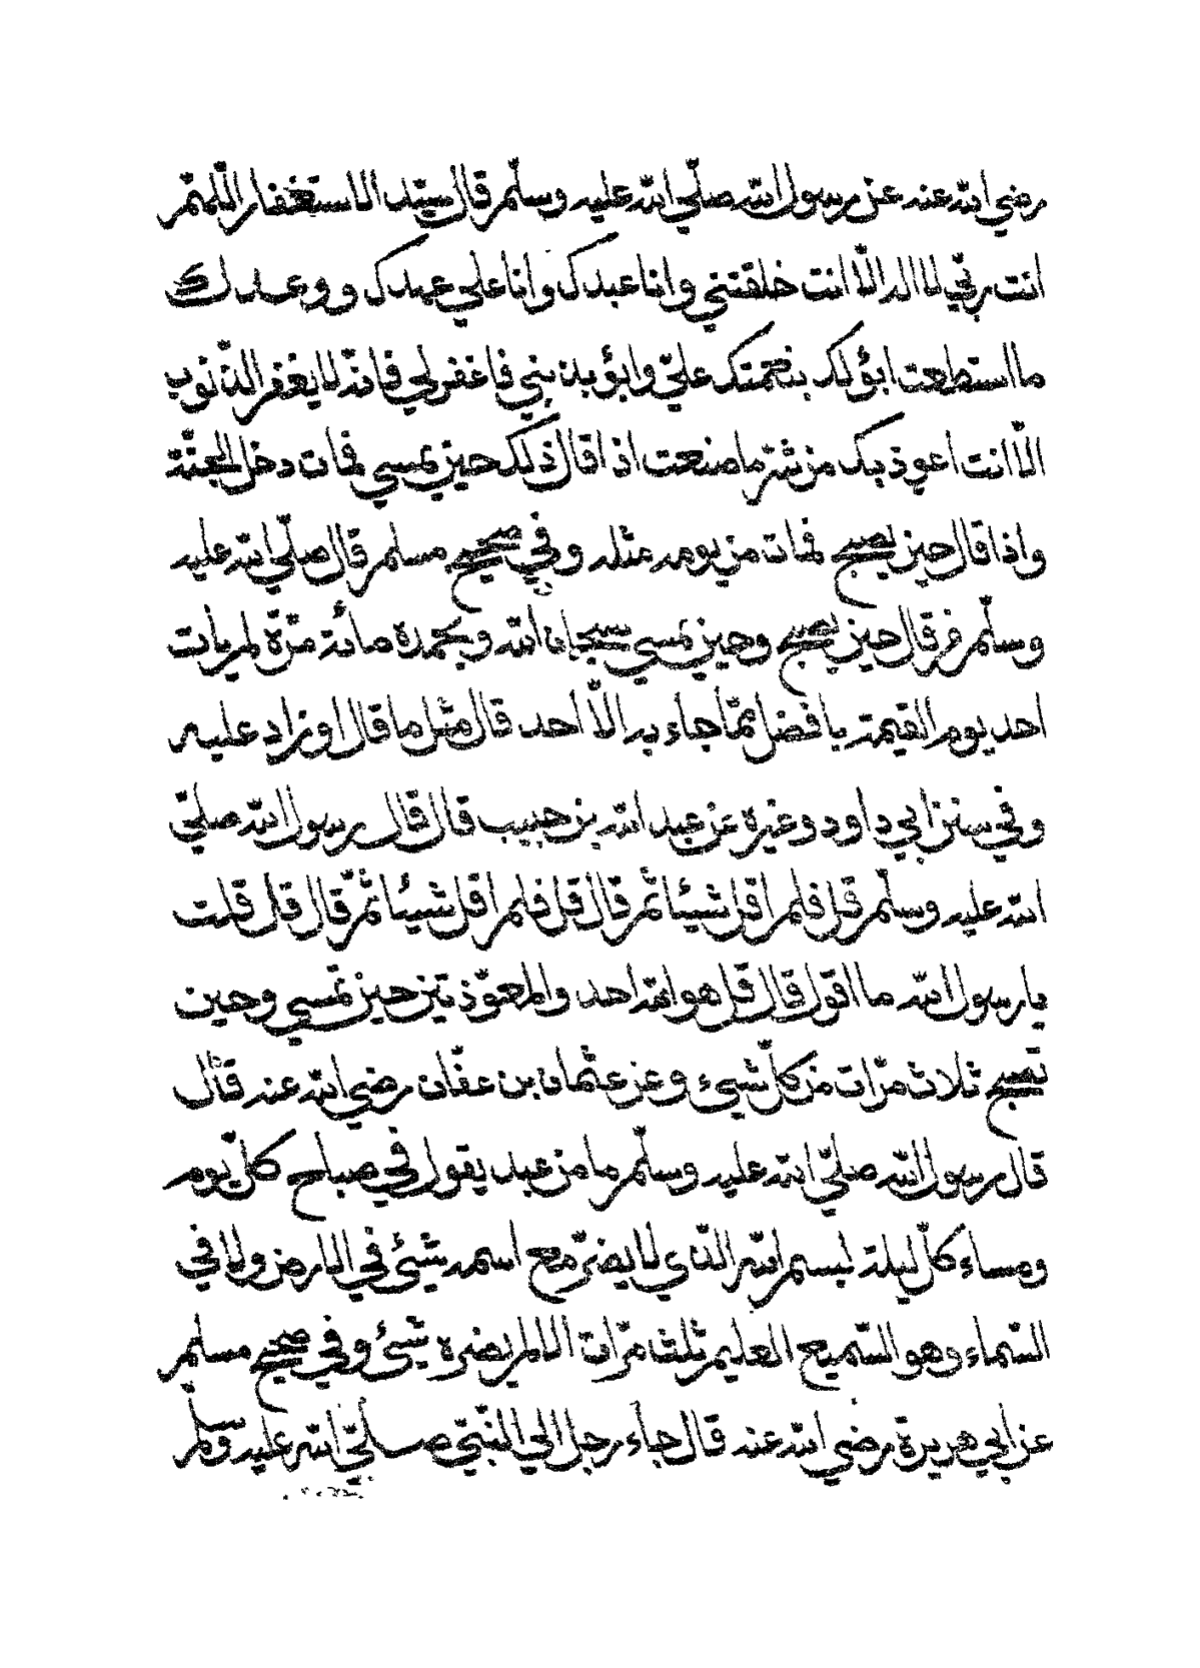 رضي الله عنه عن رسول الله صلّي الله عليه وسلّم قال سيّد الاستغفار اللّهمّ
انت ربّي لا اله الّا انت خلقتني وانا عبدك وانا علي عهدك ووعدك
ما استطعت ابؤ لك بنعمتك عليّ وابؤ بذنبي فاغفر لي فانّه لا يغفر الذّنوب
الّا انت اعوذ بك من شرّ ما صنعت اذا قال ذلك حين يمسي فمات دخل الجنّة
واذا قال حين يصبح فمات من يومه مثله وفي صحيح مسلم قال صلّي الله عليه
وسلّم من قال حين يصبح وحين يمسي سبحان الله وبحمده مائة مرّة لم يات
احد يوم القيمة بافضل ممّا جاء به الّا احد قال مثل ما قال او زاد عليه
وفي سنن ابي داود وغيره عن عبد الله بن حبيب قال قال رسول الله صلّي
الله عليه وسلّم قل فلم اقل شيئا ثمّ قال قل فلم اقل شيئا ثمّ قال قل قلت
يا رسول الله ما اقول قال قل هو الله احد والمعوّذتين حين تمسي وحين
تصبح ثلاث مرّات من كلّ شيء وعن عثمان بن عفّان رضي الله عنه قال
قال رسول الله صلّي الله عليه وسلّم ما من عبد يقول في صباح كلّ يوم
ومساء كلّ ليلة بسم الله الّذي لا يضرّ مع اسمه شيئ في الارض ولا في
السّماء وهو السّميع العليم ثلث مرّات الا لم يضره شيئ وفي صحيح مسلم
عن ابي هريرة رضي الله عنه قال جاء رجل الي النّبيّ صلّي الله عليه وسلّم